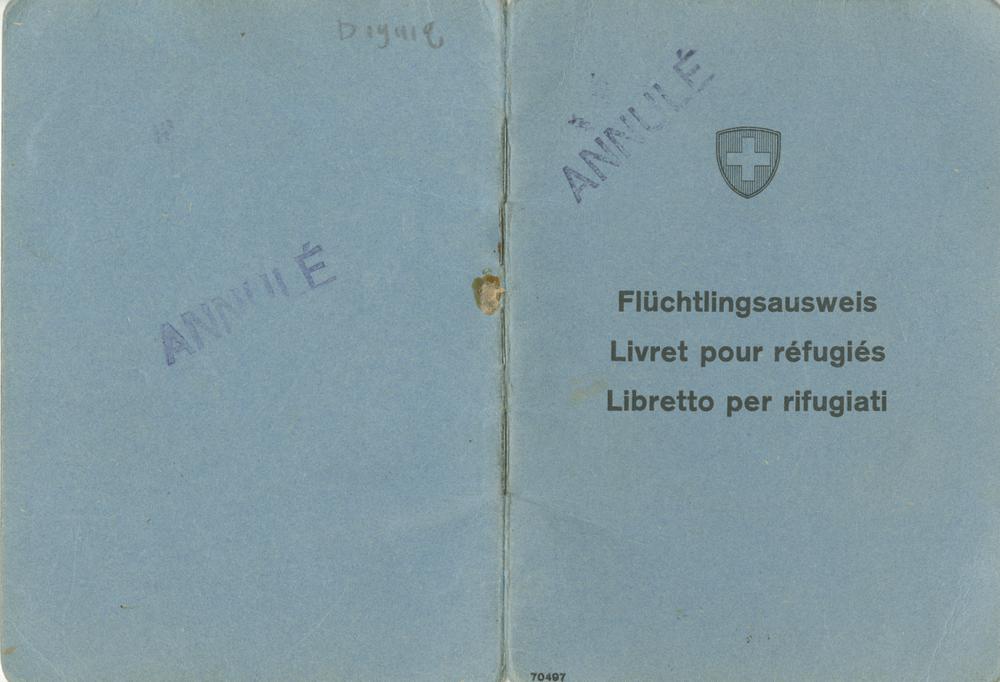 ANNULÉ
ANNULÉ
Flüchtlingsausweis
Livret pour réfugiés
Libretto per rifugiati
70497